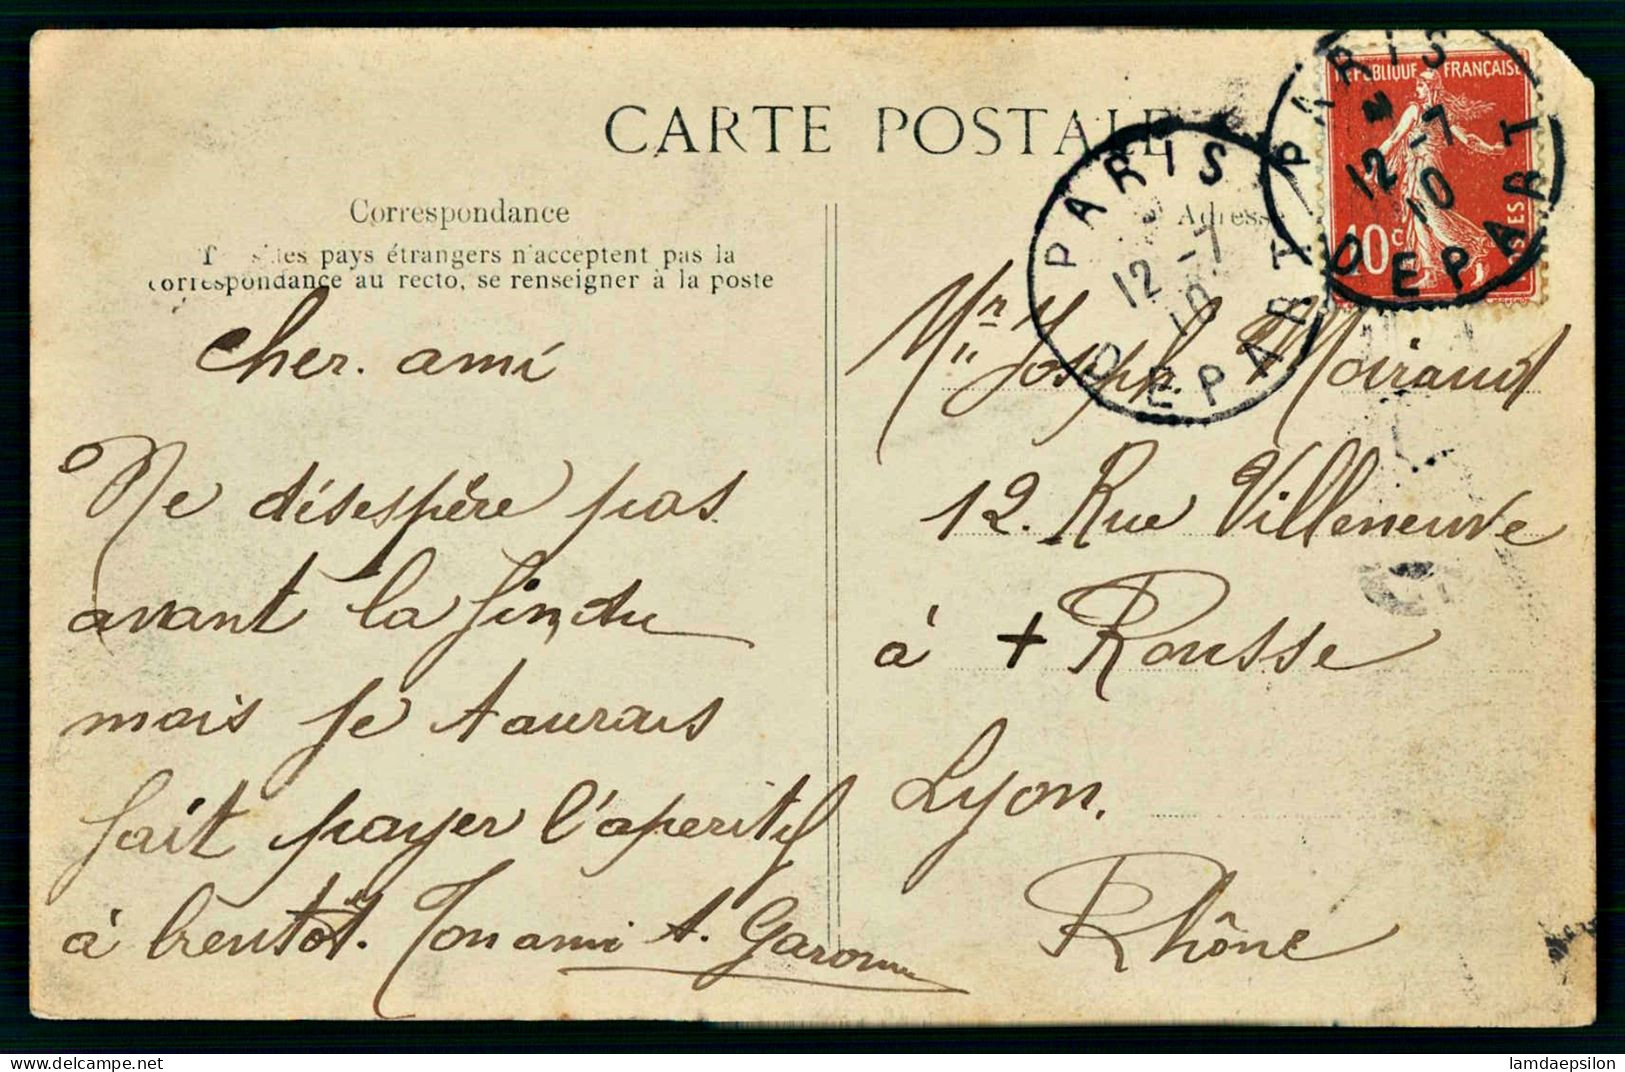 CARTE POSTALE
Correspondance
pays étrangers n'acceptent pas la
correspondance au recto, se renseigner à la poste
cher. ami
Ne désespère pas
avant la fin du
mais je taurais
fait payer l'aperitif
à bentôt. Ton ami A. Garonne
Adresse
Mr Joseph. Moiraud
12. Rue Villeneuve
à + Rousse
Lyon.
Rhône
PARIS
12 -7
10
DEPART
PARIS
12 -7
10
DEPART
REPUBLIQUE FRANÇAISE
10c
POSTES
delcampe.net
lamdaepsilon